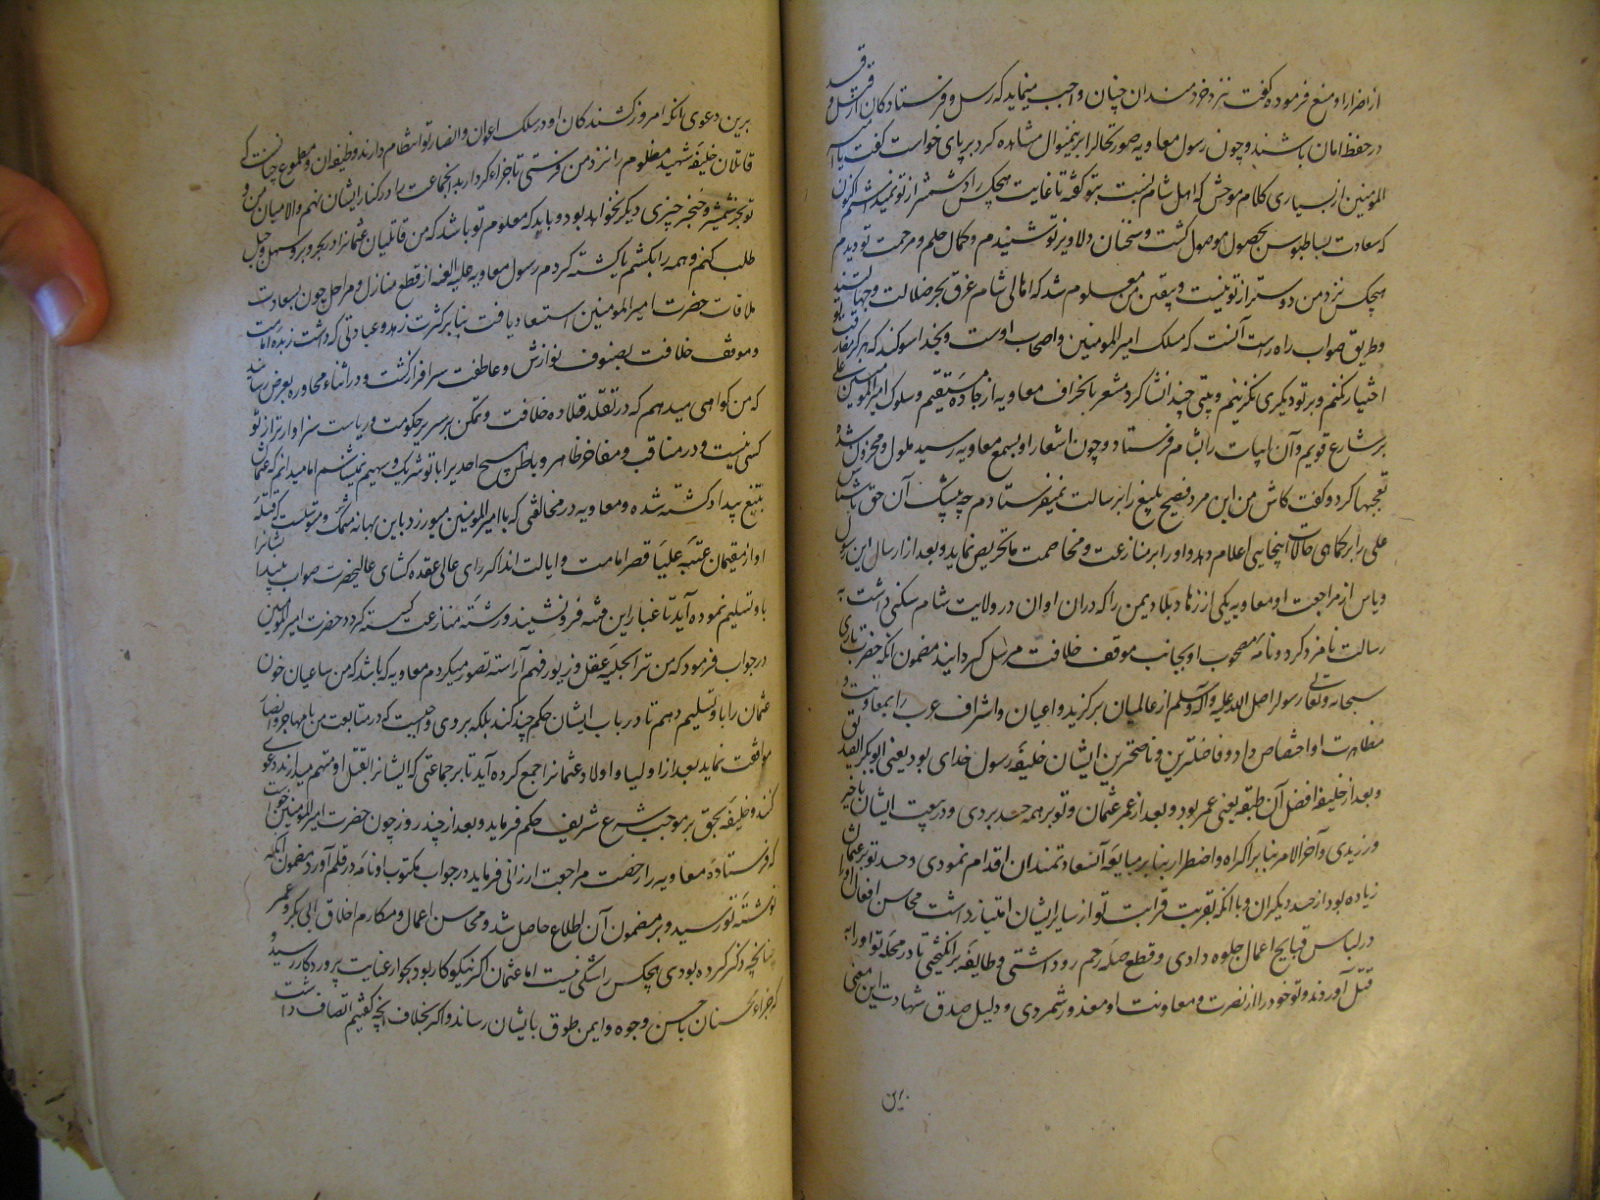 از اضرار او منع فرموده گفت نزد خردمندان چنان واجب مینماید که رسل و فرستادکان از قتل و قید
در حفظ امان باشند و چون رسول معاویه صورتحال را برینمنوال مشاهده کرد بر پای خواست گفت یا امیر
المؤمنین از بسیاری کلام موحش که اهل شام نسبت بتو گفته تا غایت هیچکس را دشمنتر از تو نمیداشتم اکنون
که سعادت بساط بوس بحصول موصول گشت و سخنان دلاویز تو شنیدم و کمال حلم و مرحمت تو دیدم
هیچکس نزد من دوستر از تو نیست و بیقین من معلوم شد که اهالی شام غرق بحر ضلالت و جهالتند
و طریق صواب و راه راست آنست که مسلک امیر المومنین و اصحاب اوست و بخدا سوکند که هرکز مفارقت تو
اختیار نکنم و بر تو دیگری نکزینم و بیتی چند انشا کرد مشعر بانحراف معاویه از جاده مستقیم و سلوک امیر المومنین علی
بر شارع قویم و آن ابیات را بشام فرستاد و چون اشعار او بسمع معاویه رسید ملول و محزون شده
تعجبها کرد و گفت کاش من این مرد فصیح بلیغ را برسالت نمیفرستادم چه بیشک آن حق ناشناس
علی را بر کماهی حالات اینجایی اعلام دهد و او را بر منازعت و مخاصمت ما تحریص نماید و بعد از ارسال این رسول
و یاس از مراجعت او معاویه یکی از زهاد بلاد یمن را که دران اوان در ولایت شام سکنی داشت به
رسالت نامزد کرد و نامه مصحوب او بجانب موقف خلافت مرسل گردانید مضمون انکه حضرت باری
سبحانه و تعالی رسول را صلی الله علیه و آله وسلم از عالمیان برگزید و اعیان و اشراف عرب را بمعاونت و
مظاهرت او اختصاص داد و فاضلترین و ناصحترین ایشان خلیفه رسول خدای بود یعنی ابوبکر الصدیق
و بعد از خلیفه افضل آن طبقه یعنی عمر بود و بعد از عمر عثمان و تو بر همه حسد بردی و در بیعت ایشان تاخیر
ورزیدی و آخر الامر بنا بر اکراه و اضطرار بنا بر مبایعه آنسعادتمندان اقدام نمودی و حسد تو بر عثمان
زیاده بود از حسد دیگران و با انکه بقربت قرابت تو از سایر ایشان امتیاز داشت محاسن افعال او را
در لباس قبایح اعمال جلوه دادی و قطع صله رحم روا داشتی و طایفه برانگیختی تا در محله تو او را به
قتل آوردند و تو خود را از نصرت و معاونت او معذور شمردی و دلیل صدق شهادت این معنی
برین
برین دعوی انکه امروز کشندکان او در سلک اعوان و انصار تو انتظام دارند وظیفه ان و مطبوع چنانست که
قاتلان خلیفه شهید مظلوم را نزد من فرستی تا جزاء کردار بد انجماعت را در کنار ایشان نهم والا میان من و
تو بجز شمشیر و خنجر چیزی دیگر نخواهد بود و باید که معلوم تو باشد که من قاتلان عثمانرا در بحر و بر و سهل و جبل
طلب کنم و همه را بکشم یا کشته کردم رسول معاویه علیه اللعنه از قطع منازل و مراحل چون بسعادت
ملاقات حضرت امیر المومنین استسعاد یافت بنا بر کثرت زهد و عبادتی که داشت زبده امامت
و موقف خلافت بصنوف نوازش و عاطفت سرافراز گشت و در اثناء محاوره بعرض رسانید
که من کواهی میدهم که در تقلد قلاده خلافت و تمکن بر سریر حکومت و ریاست سزاوارتر از تو
کسی نیست و در مناقب و مفاخر ظاهر و باطن هیچ احدیرا با تو شریک و سهیم نمیشناسم اما میدانم که عثمان
بتیغ بیداد کشته شده و معاویه در مخالفتی که با امیر المومنین میورزد باین بهانه متمسک و متوسلست که قتله
او از مقیمان عتبه علیا قصر امامت و ایالت اند اکر رای عالی عقده کشای عالیحضرت صواب بیند ایشانرا
باو تسلیم نموده آید تا غبار این فتنه فرونشیند و رشته منازعت کسسته کردد حضرت امیر المومنین
در جواب فرمود که من ترا بحلیه عقل و زیور فهم آراسته تصور میکردم معاویه که باشد که من ساعیان خون
عثمان را باو تسلیم دهم تا در باب ایشان حکم چند کند بلکه بر وی واجبست که در متابعت من با مهاجر و انصار
موافقت نماید بعد از اولیا و اولاد عثمانرا جمع کرده آید تا بر جماعتی که ایشانرا بقتل او متهم میدارند دعوی
کنند و خلیفه بحق بر موجب شرع شریف حکم فرماید و بعد از چند روز چون حضرت امیر المومنین خواست
که فرستاده معاویه را رخصت مراجعت ارزانی فرماید در جواب مکتوب او نامه در قلم آورد مضمون انکه
نوشته تو رسید و بر مضمون آن اطلاع حاصل شد و محاسن اعمال و مکارم اخلاق ابی بکر و عمر
چنانچه ذکر کرده بودی هیچکس را شکی نیست اما عثمان اکر نیکوکار بود بجوار عنایت پروردکار رسید و
که جزاء محسنان باحسن وجوه و ایمن طرق بایشان رساند و اکر بخلاف انچه کفتیم اتصاف داشت